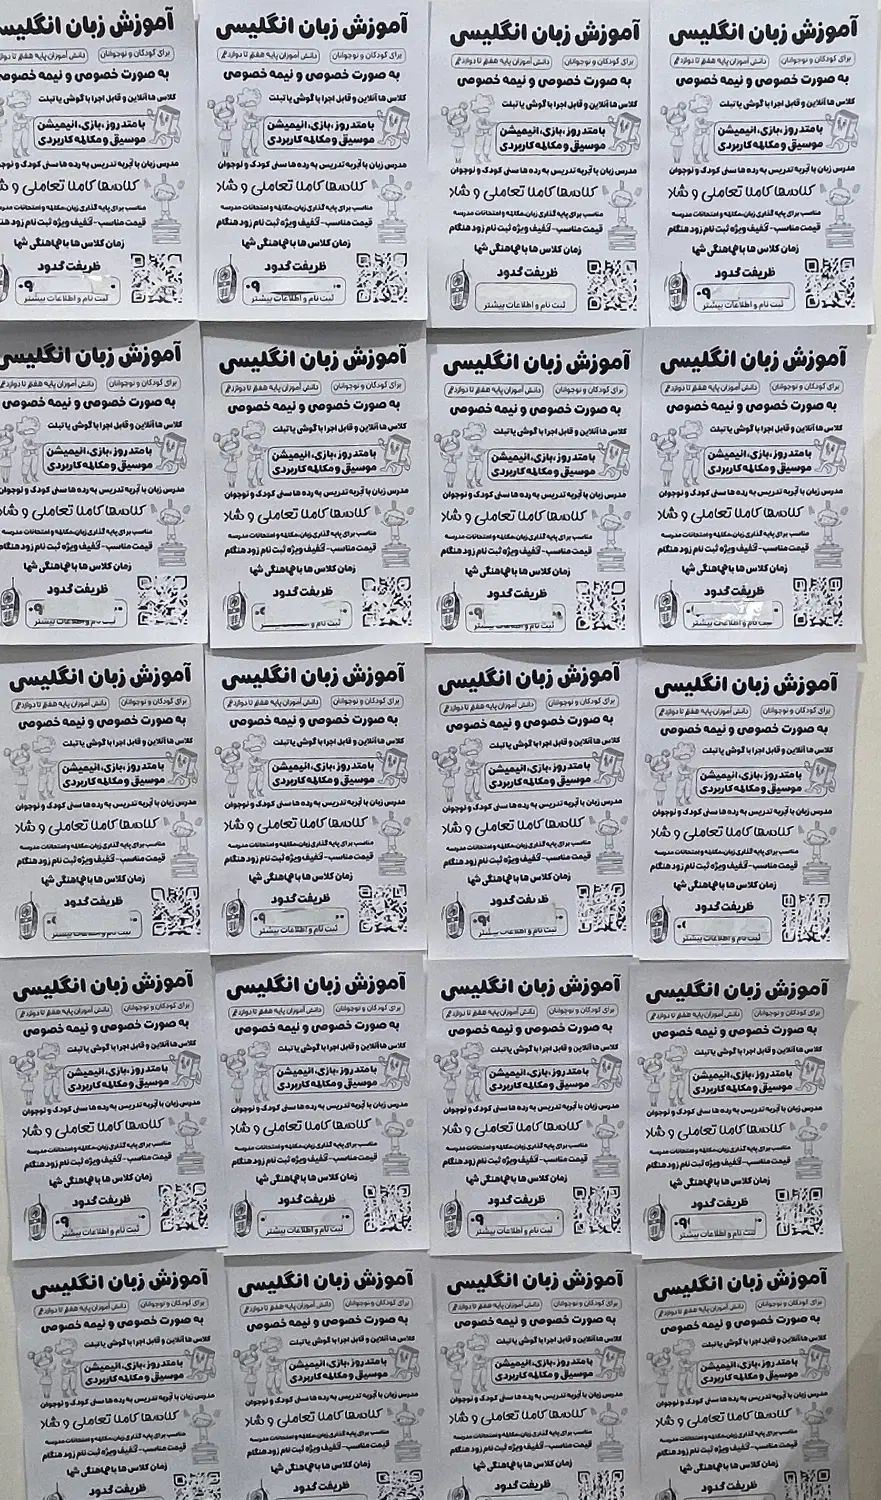 آموزش زبان انگلیسی
برای کودکان و نوجوانان
دانش آموزان پایه هفتم تا دوازدهم
به صورت خصوصی و نیمه خصوصی
کلاس ها آنلاین و قابل اجرا با گوشی یا تبلت
با متد روز، بازی، انیمیشن
موسیقی و مکالمه کاربردی
مدرس زبان با تجربه تدریس به رده ها سنی کودک و نوجوان
کلاسها کاملا تعاملی و شاد
مناسب برای پایه گذاری زبان، مکالمه و امتحانات مدرسه
قیمت مناسب - تخفیف ویژه ثبت نام زود هنگام
زمان کلاس ها با هماهنگی شما
ظریفت محدود
۰۹
ثبت نام و اطلاعات بیشتر